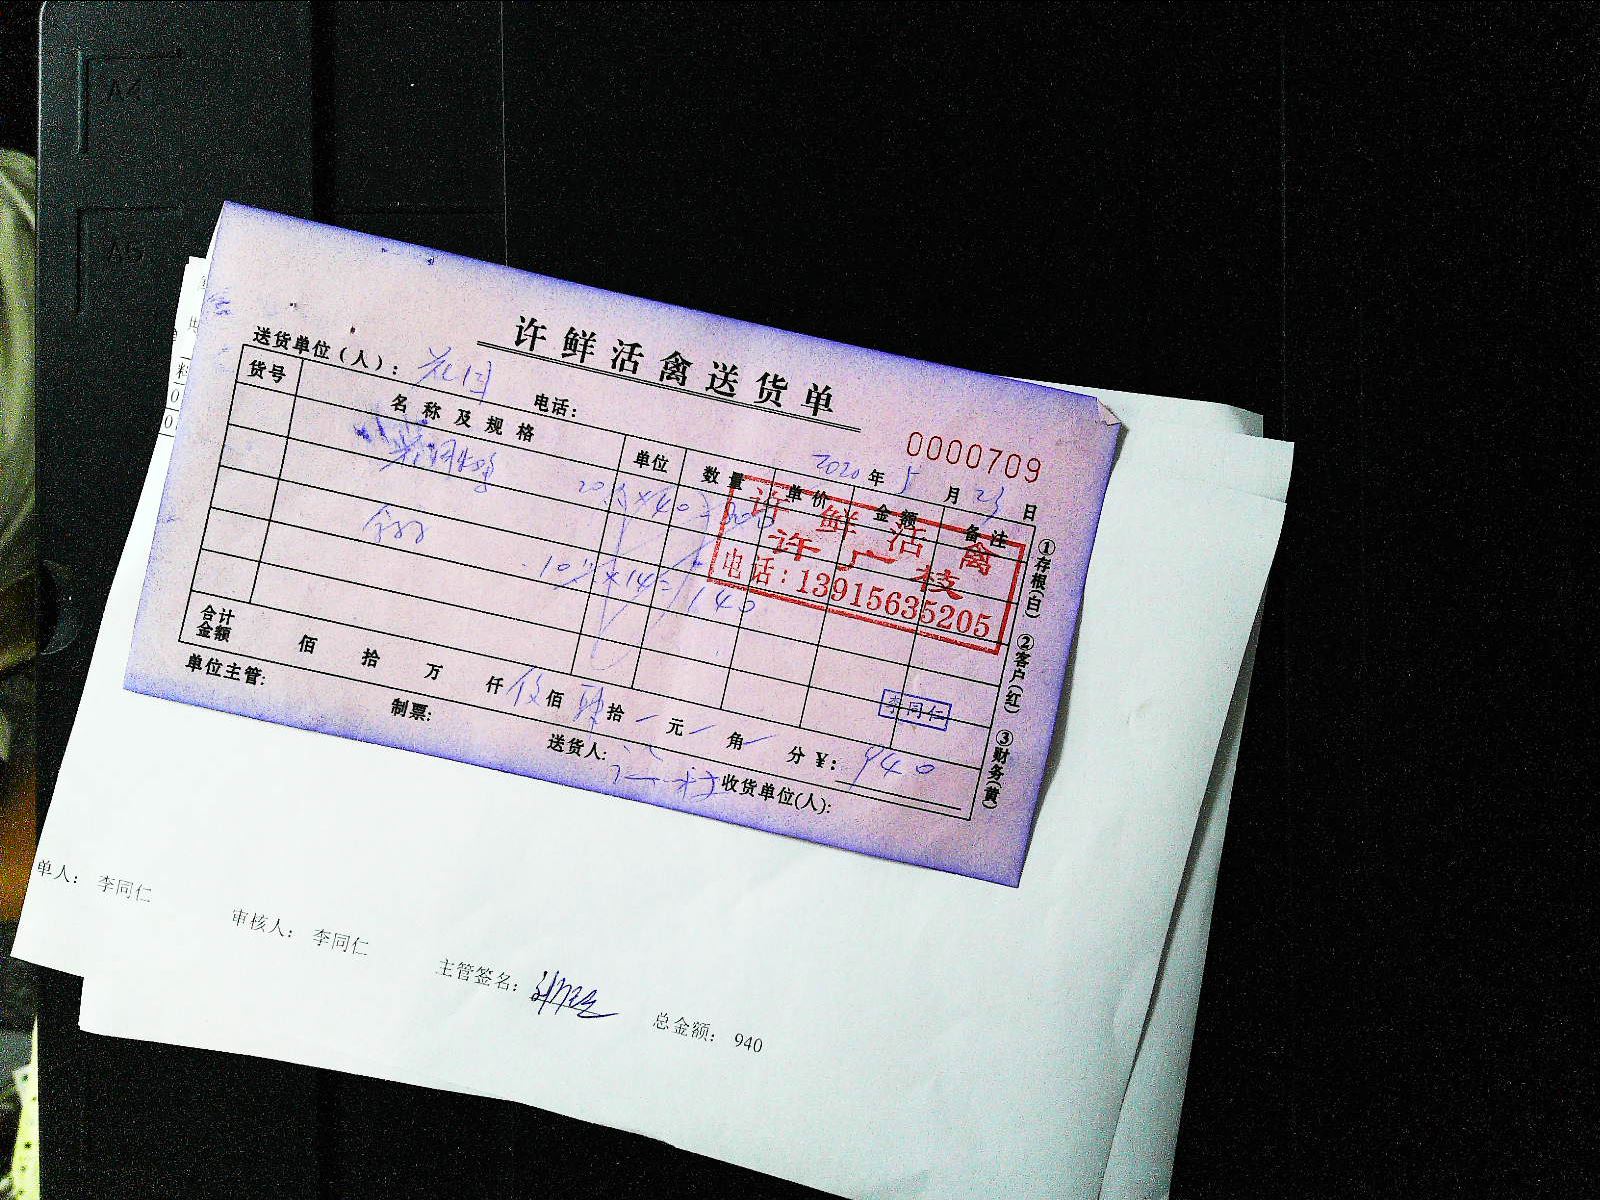 A4
A5
许鲜活禽送货单
0000709
送货单位（人）： 花园
电话：
2020 年 5 月 23 日
货号 名称及规格 单位 数量 单价 金额 备注
×40=800
×14=140
许鲜活禽
许广枝
电话：13915635205
①存根(白) ②客户(红) ③财务(黄)
李同仁
合计金额 佰 拾 万 仟 佰 肆 拾 元 角 分 ¥： 940
单位主管： 制票： 送货人： 收货单位(人)：
单人： 李同仁 审核人： 李同仁 主管签名： 总金额： 940